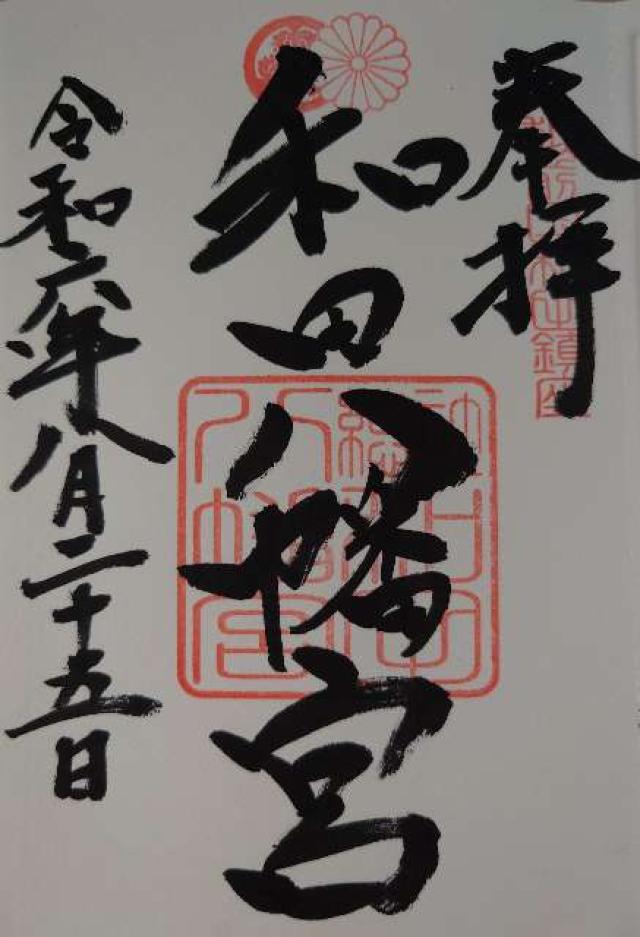 奉拝
鎮座
和田八幡宮
八幡宮
令和六年八月二十五日